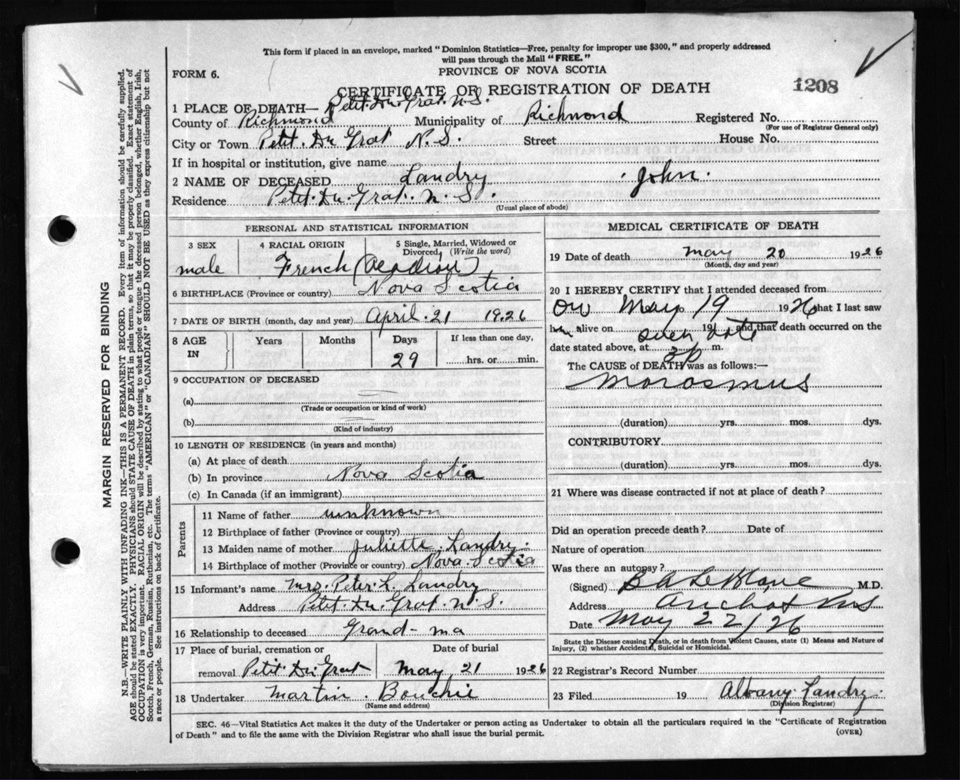 This form if placed in an envelope, marked "Dominion Statistics—Free, penalty for improper use $300," and properly addressed
will pass through the Mail "FREE."
FORM 6.
PROVINCE OF NOVA SCOTIA
CERTIFICATE OR REGISTRATION OF DEATH
1208
1 PLACE OF DEATH— Petit Du Grat. N.S.
County of Richmond Municipality of Richmond Registered No.
(For use of Registrar General only)
City or Town Petit. Du Grat N.S. Street House No.
If in hospital or institution, give name
2 NAME OF DECEASED Landry John.
Residence Petit. Du. Grat. N.S.
(Usual place of abode)
PERSONAL AND STATISTICAL INFORMATION
3 SEX 4 RACIAL ORIGIN 5 Single, Married, Widowed or
Divorced, (Write the word)
male French (Acadian)
6 BIRTHPLACE (Province or country) Nova Scotia
7 DATE OF BIRTH (month, day and year) April. 21 1926
8 AGE IN Years Months Days If less than one day,
29 hrs. or min.
9 OCCUPATION OF DECEASED
(a)
(Trade or occupation or kind of work)
(b)
(Kind of industry)
10 LENGTH OF RESIDENCE (in years and months)
(a) At place of death
(b) In province Nova Scotia
(c) In Canada (if an immigrant)
Parents
11 Name of father unknown
12 Birthplace of father (Province or country)
13 Maiden name of mother Juliette. Landry.
14 Birthplace of mother (Province or country) Nova. Scotia
15 Informant's name Mrs. Peter L. Landry
Address Petit. Du Grat. N.S.
16 Relationship to deceased Grand-ma
17 Place of burial, cremation or Date of burial
removal Petit Du Grat May 21 1926
18 Undertaker Martin. Bouchie
(Name and address)
MEDICAL CERTIFICATE OF DEATH
19 Date of death May 20 1926
(Month, day and year)
20 I HEREBY CERTIFY that I attended deceased from
on May 19 1926 that I last saw
h alive on 191 and that death occurred on
date stated above, at m.
The CAUSE of DEATH was as follows:—
Morosmus
(duration) yrs. mos. dys.
CONTRIBUTORY
(duration) yrs. mos. dys.
21 Where was disease contracted if not at place of death?
Did an operation precede death? Date of
Nature of operation
Was there an autopsy?
(Signed) B A LeBlanc M.D.
Address Arichat NS
Date May 22/26
State the Disease causing Death, or in death from Violent Causes, state (1) Means and Nature of
Injury, (2) whether Accidental, Suicidal or Homicidal.
22 Registrar's Record Number
23 Filed 19 Albany. Landry.
(Division Registrar)
SEC. 46—Vital Statistics Act makes it the duty of the Undertaker or person acting as Undertaker to obtain all the particulars required in the "Certificate of Registration
of Death" and to file the same with the Division Registrar who shall issue the burial permit.
(OVER)
MARGIN RESERVED FOR BINDING
N.B.—WRITE PLAINLY WITH UNFADING INK—THIS IS A PERMANENT RECORD. Every item of information should be carefully supplied.
AGE should be stated EXACTLY. PHYSICIANS should STATE CAUSE OF DEATH in plain terms, so that it may be properly classified. Exact statement of
OCCUPATION is very important. RACIAL ORIGIN will be described by stating to what people or tongue the deceased person belonged, whether English, Irish,
Scotch, French, German, Russian, Ruthenian, etc. The terms "AMERICAN" or "CANADIAN" SHOULD NOT BE USED as they express citizenship but not
a race or people. See instructions on back of Certificate.